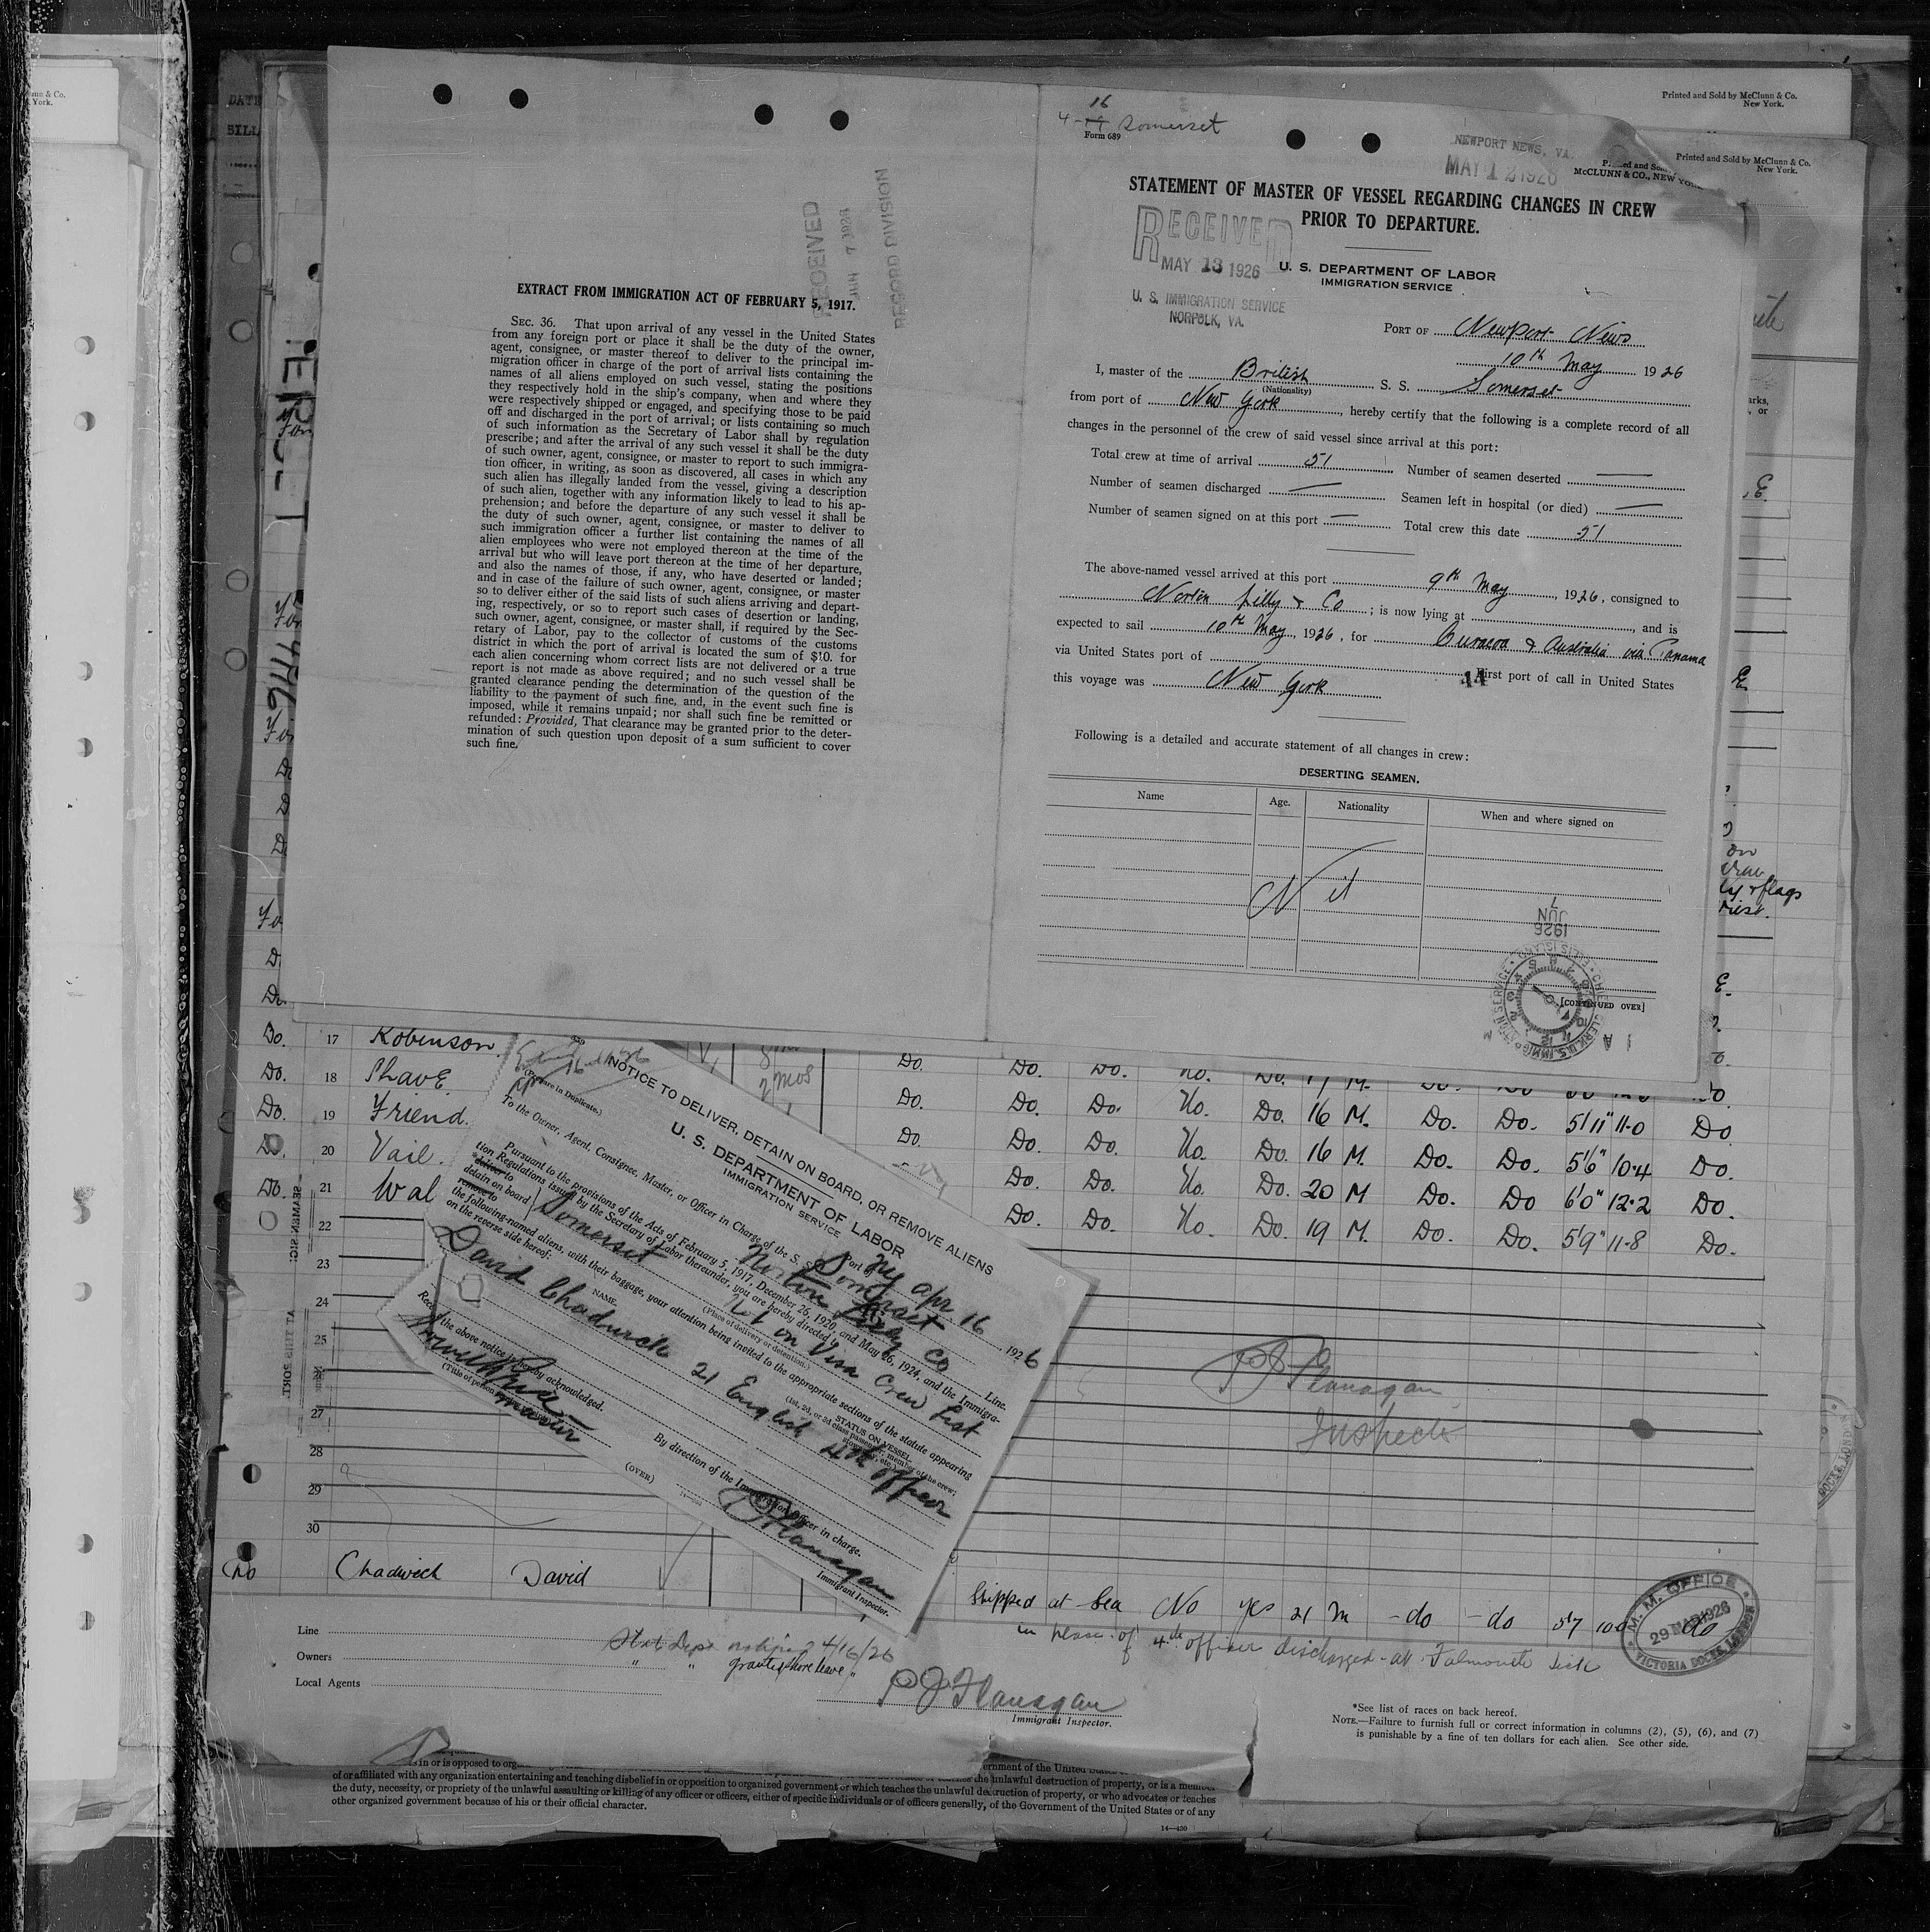 Printed and Sold by McClunn & Co.
New York.
Printed and Sold by McClunn & Co.
New York.
McCLUNN & CO., NEW YORK
RECEIVED
7 1926
RECORD DIVISION
EXTRACT FROM IMMIGRATION ACT OF FEBRUARY 5, 1917.
SEC. 36. That upon arrival of any vessel in the United States
from any foreign port or place it shall be the duty of the owner,
agent, consignee, or master thereof to deliver to the principal im-
migration officer in charge of the port of arrival lists containing the
names of all aliens employed on such vessel, stating the positions
they respectively hold in the ship's company, when and where they
were respectively shipped or engaged, and specifying those to be paid
off and discharged in the port of arrival; or lists containing so much
of such information as the Secretary of Labor shall by regulation
prescribe; and after the arrival of any such vessel it shall be the duty
of such owner, agent, consignee, or master to report to such immigra-
tion officer, in writing, as soon as discovered, all cases in which any
such alien has illegally landed from the vessel, giving a description
of such alien, together with any information likely to lead to his ap-
prehension; and before the departure of any such vessel it shall be
the duty of such owner, agent, consignee, or master to deliver to
such immigration officer a further list containing the names of all
alien employees who were not employed thereon at the time of the
arrival but who will leave port thereon at the time of her departure,
and also the names of those, if any, who have deserted or landed;
and in case of the failure of such owner, agent, consignee, or master
so to deliver either of the said lists of such aliens arriving and depart-
ing, respectively, or so to report such cases of desertion or landing,
such owner, agent, consignee, or master shall, if required by the Sec-
retary of Labor, pay to the collector of customs of the customs
district in which the port of arrival is located the sum of $10. for
each alien concerning whom correct lists are not delivered or a true
report is not made as above required; and no such vessel shall be
granted clearance pending the determination of the question of the
liability to the payment of such fine, and, in the event such fine is
imposed, while it remains unpaid; nor shall such fine be remitted or
refunded: Provided, That clearance may be granted prior to the deter-
mination of such question upon deposit of a sum sufficient to cover
such fine.
16
4-19 Somerset
Form 689
NEWPORT NEWS, VA.
MAY 12 1926
STATEMENT OF MASTER OF VESSEL REGARDING CHANGES IN CREW
PRIOR TO DEPARTURE.
RECEIVED
MAY 13 1926
U. S. IMMIGRATION SERVICE
NORFOLK, VA.
U. S. DEPARTMENT OF LABOR
IMMIGRATION SERVICE
PORT OF Newport News
10th May 1926
I, master of the British S. S. Somerset
(Nationality)
from port of New York, hereby certify that the following is a complete record of all
changes in the personnel of the crew of said vessel since arrival at this port:
Total crew at time of arrival 51 Number of seamen deserted —
Number of seamen discharged — Seamen left in hospital (or died) —
Number of seamen signed on at this port — Total crew this date 51
The above-named vessel arrived at this port 9th May, 1926, consigned to
Norton Lilly & Co; is now lying at , and is
expected to sail 10th May, 1926, for Curacoa & Australia via Panama
via United States port of First port of call in United States
this voyage was New York
Following is a detailed and accurate statement of all changes in crew:
DESERTING SEAMEN.
Name Age. Nationality When and where signed on
Nil
1926
JUN
7
[CONTINUED OVER]
Do. 17 Robinson.
Do. 18 Shave
Do. 19 Friend.
Do. 20 Vail.
Do. 21 Wal
22
23
24
25
26
27
28
29
30
Do. Do. Do. No. Do. 17 M.
Do. Do. Do. No. Do. 16 M. Do. Do. 5'11" 11-0 Do.
Do. Do. Do. No. Do. 16 M. Do. Do. 5'6" 10-4 Do.
Do. Do. No. Do. 20 M Do. Do 6'0" 12-2 Do.
Do. Do. No. Do. 19 M. Do. Do. 5'9" 11-8 Do.
(Prepare in Duplicate.)
NOTICE TO DELIVER, DETAIN ON BOARD, OR REMOVE ALIENS
U. S. DEPARTMENT OF LABOR
IMMIGRATION SERVICE
Port of NY Apr 16 1926
To the Owner, Agent, Consignee, Master, or Officer in Charge of the S. S. Somerset
Norton Lilly Co Line.
Pursuant to the provisions of the Acts of February 5, 1917, December 26, 1920, and May 26, 1924, and the Immigra-
tion Regulations issued by the Secretary of Labor thereunder, you are hereby directed
deliver to
detain on board
remove to
Somerset Not on Visa Crew List
(Place of delivery or detention.)
the following-named aliens, with their baggage, your attention being invited to the appropriate sections of the statute appearing
on the reverse side hereof:
NAME.
STATUS ON VESSEL.
(1st, 2d, or 3d class passenger, member of the crew,
stowaway, etc.)
David Chadwick 21 English 4th officer
Receipt of the above notice is hereby acknowledged.
Master
By direction of the Immigration Officer in charge.
PJ Flanagan
Immigrant Inspector.
(OVER)
P J Flanagan
Inspector
No Chadwick David Shipped at Sea No yes 21 m -do -do 5'7 10.0 do
in place of 4th officer discharged at Falmouth sick
M. M. OFFICE
29 MAR 1926
VICTORIA DOCKS, LONDON
Line
Owners
Local Agents
State Dept notified 4/16/26
" " granted shore leave "
P J Flanagan
Immigrant Inspector.
*See list of races on back hereof.
NOTE.—Failure to furnish full or correct information in columns (2), (5), (6), and (7)
is punishable by a fine of ten dollars for each alien. See other side.
of or affiliated with any organization entertaining and teaching disbelief in or opposition to organized government or which teaches the unlawful destruction of property, or is a member
the duty, necessity, or propriety of the unlawful assaulting or killing of any officer or officers, either of specific individuals or of officers generally, of the Government of the United States or of any
other organized government because of his or their official character.
14—430